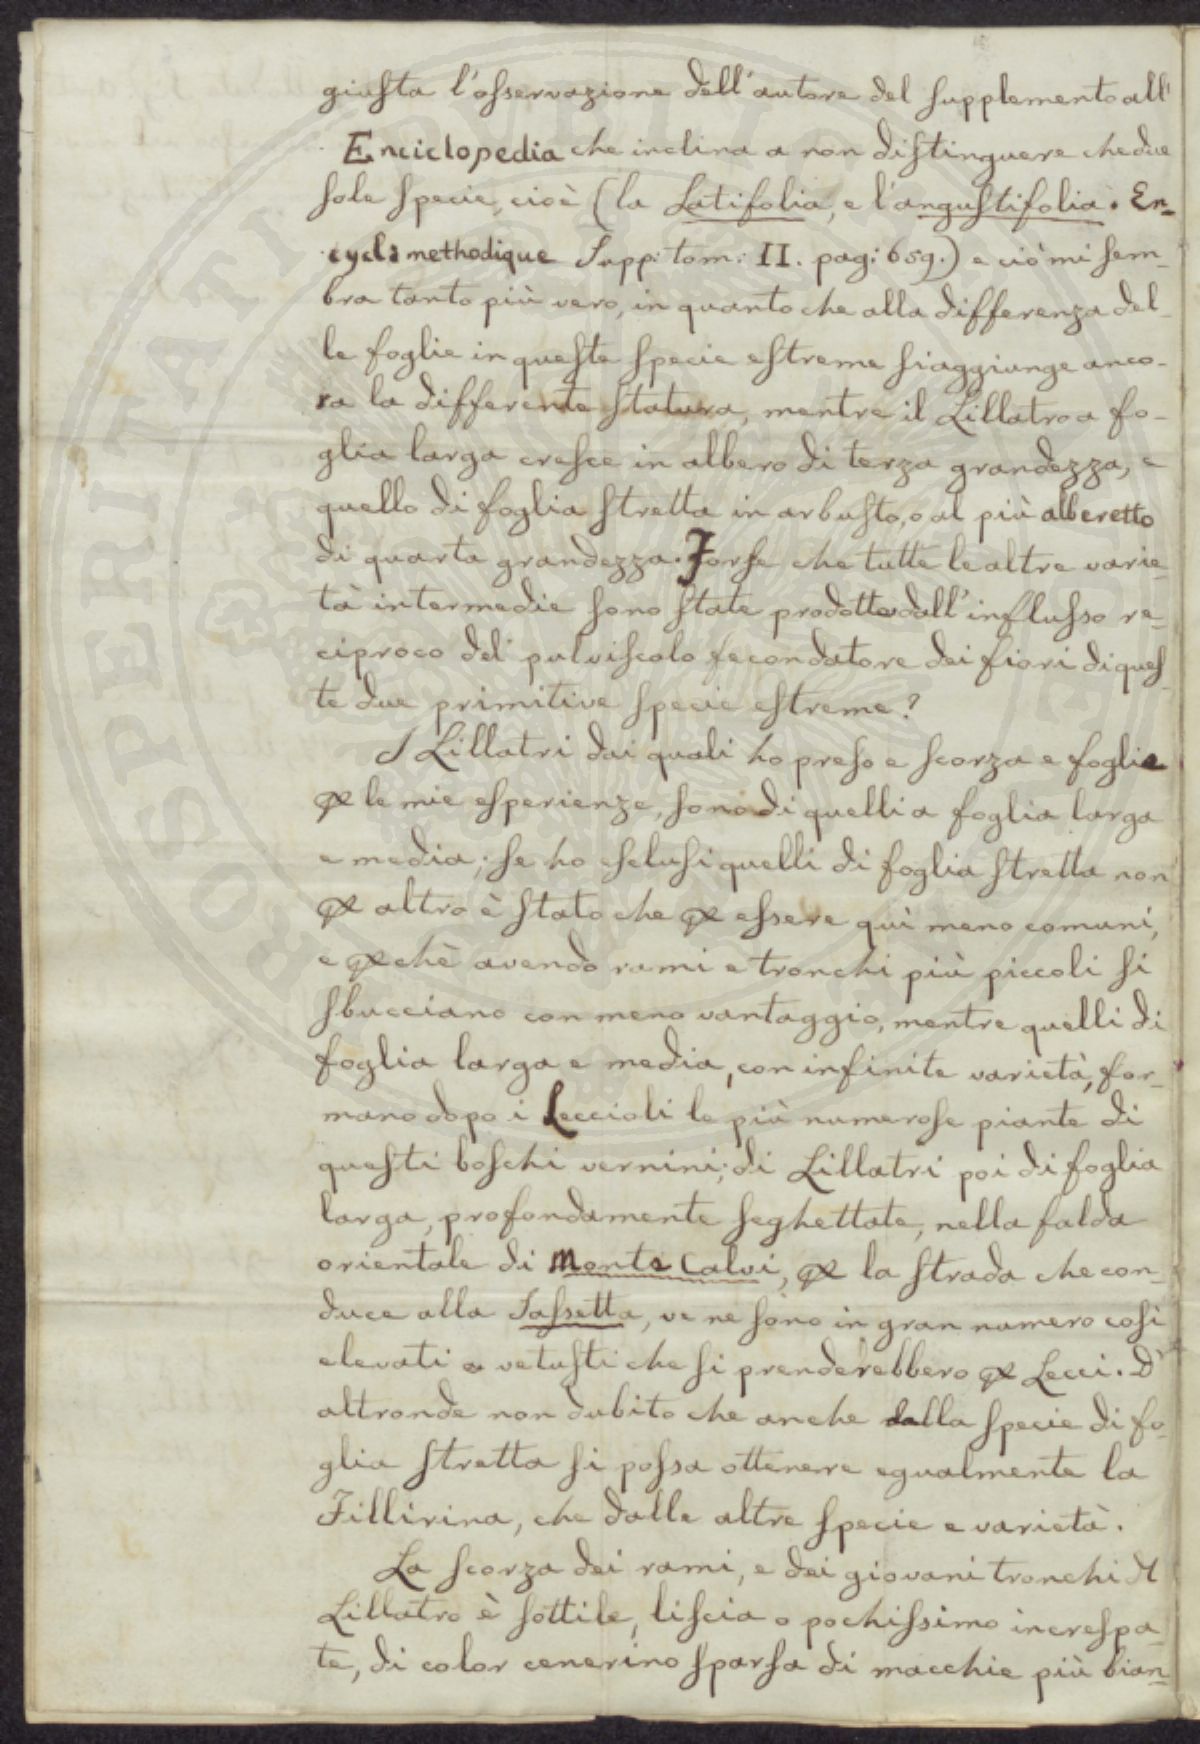 giusta l'osservazione dell'autore del supplemento all'
Enciclopedia che inclina a non distinguere che due
sole specie, cioè (la Latifolia, e l'angustifolia. En-
cycl: methodique Supp: tom: II. pag: 659.) e ciò mi sem-
bra tanto più vero, in quanto che alla differenza del-
le foglie in queste specie estreme si aggiunge anco-
ra la differente statura, mentre il Lillatro a fo-
glia larga cresce in albero di terza grandezza, e
quello di foglia stretta in arbusto, o al più alberetto
di quarta grandezza. Forse che tutte le altre varie-
tà intermedie sono state prodotte dall'influsso re-
ciproco del pulviscolo fecondatore dei fiori di ques-
te due primitive specie estreme?
I Lillatri dai quali ho preso e scorza e foglie
p le mie esperienze, sono di quelli a foglia larga
e media; se ho esclusi quelli di foglia stretta non
p altro è stato che p essere quì meno comuni,
e pchè avendo rami e tronchi più piccoli si
sbucciano con meno vantaggio, mentre quelli di
foglia larga e media, con infinite varietà, for-
mano dopo i Leccioli le più numerose piante di
questi boschi vernini; di Lillatri poi di foglia
larga, profondamente seghettate, nella falda
orientale di Monte Calvi, p la strada che con-
duce alla Sassetta, ve ne sono in gran numero così
elevati e vetusti che si prenderebbero p Lecci. D'
altronde non dubito che anche dalla specie di fo-
glia stretta si possa ottenere egualmente la
Fillirina, che dalle altre specie e varietà.
La scorza dei rami, e dei giovani tronchi di
Lillatro è sottile, liscia o pochissimo increspa-
te, di color cenerino sparsa di macchie più bian-
PROSPERITATI PUBLICAE